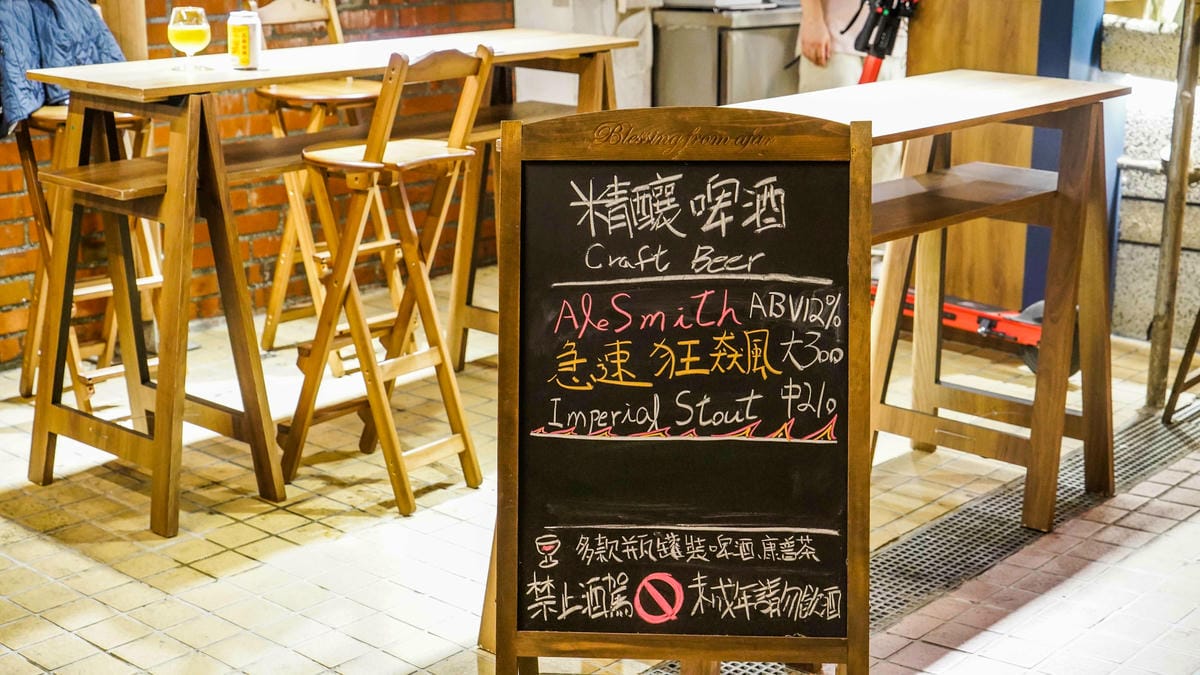 Blessing from afar
精釀啤酒
Craft Beer
AleSmith ABV12%
急速狂猋風 大300
Imperial Stout 中210
多款瓶罐裝啤酒、康普茶
禁止酒駕 未成年請勿飲酒